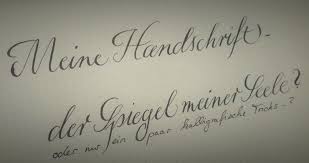 Meine Handschrift -
der Spiegel meiner Seele?
oder nur ein paar kalligrafische Tricks - ?